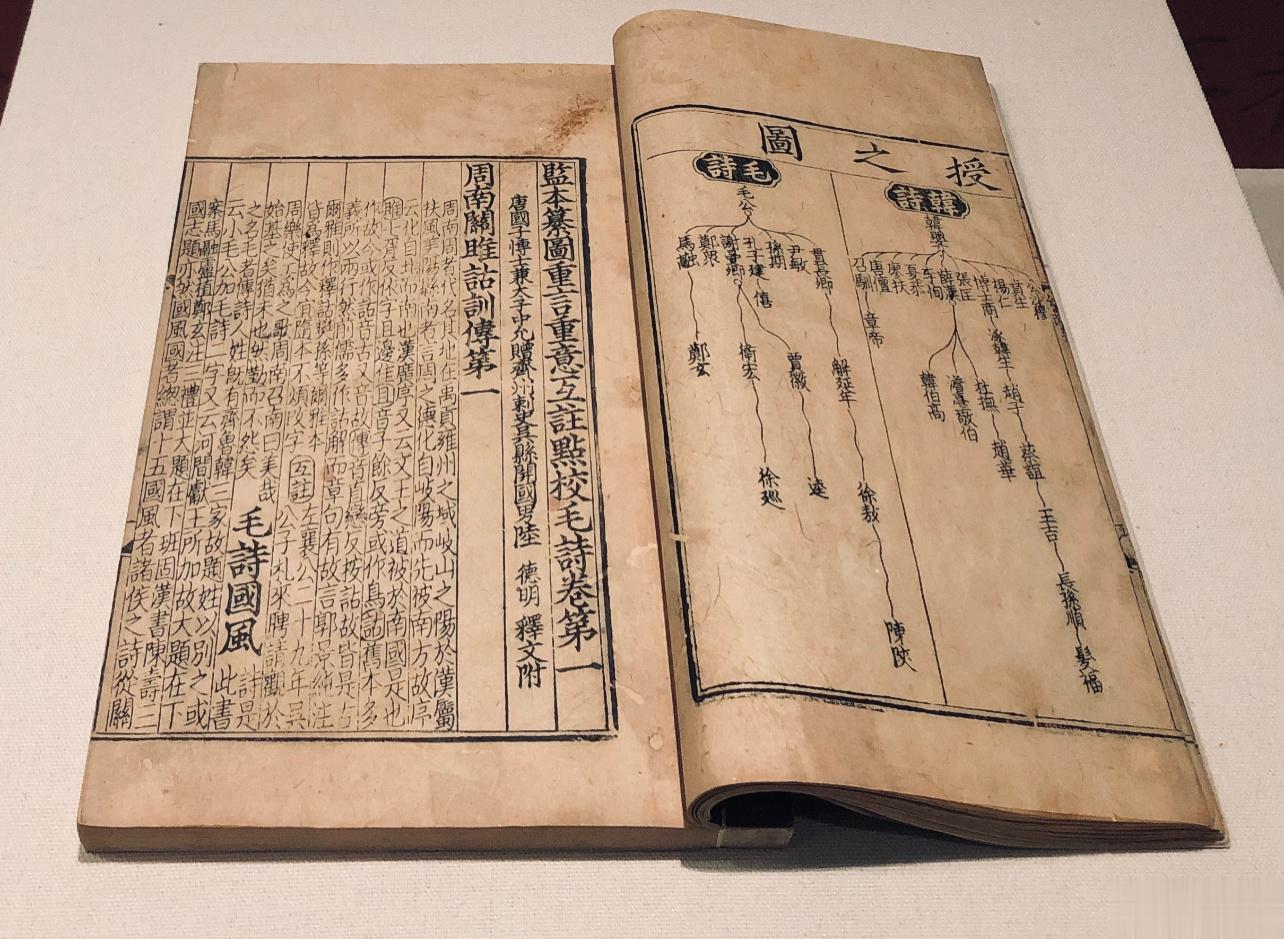 授之圖
韓詩
韓嬰
公孫
楊仁
博士商
張匡
薛漢
夏恭
廖扶
唐檀
召馴
章帝
趙子
蔡誼
王吉
長孫順
髮福
杜撫
趙華
澹臺敬伯
韓伯高
毛詩
毛公
貫長卿
解延年
徐敖
陳陜
尹敏
孫期
孔子建
僖
謝曼卿
賈徽
逵
衛宏
徐廵
鄭眾
馬融
鄭玄
監本纂圖重言重意互註點校毛詩卷第一
唐國子博士兼太子中允贈齊州刺史吳縣開國男陸 德明 釋文附
周南關雎詁訓傳第一
周南周者代名其地在禹貢雍州之域岐山之陽於漢屬
扶風美陽縣南者言周之德化自岐陽而先被南方故序
云化自北而南也漢廣序又云文王之道被於南國是也
雎七胥反依字且邊隹且音子餘反旁或作鳥詁舊本多
作故今或作詁音古又音故傳音直戀反按詁故皆是古
義所以兩行然前儒多作詁解而章句有故言郭景純注
爾雅則作釋詁樊孫等爾雅本
皆為釋故今宜隨本不煩改字 互註 左襄公二十九年吳
公子札來聘請觀於
周樂使工為之歌周南召南曰美哉
始基之矣猶未也然勤而不怨矣
毛詩國風
詩是
此書
之大名毛者傳詩人姓既有齊魯韓三家故題姓以別之或
云小毛公加毛詩二字又云河間獻王所加故大題在下
案馬融盧植鄭玄注三禮並大題在下班固漢書陳壽三
國志題亦然國風國者緫謂十五國風者諸侯之詩從關